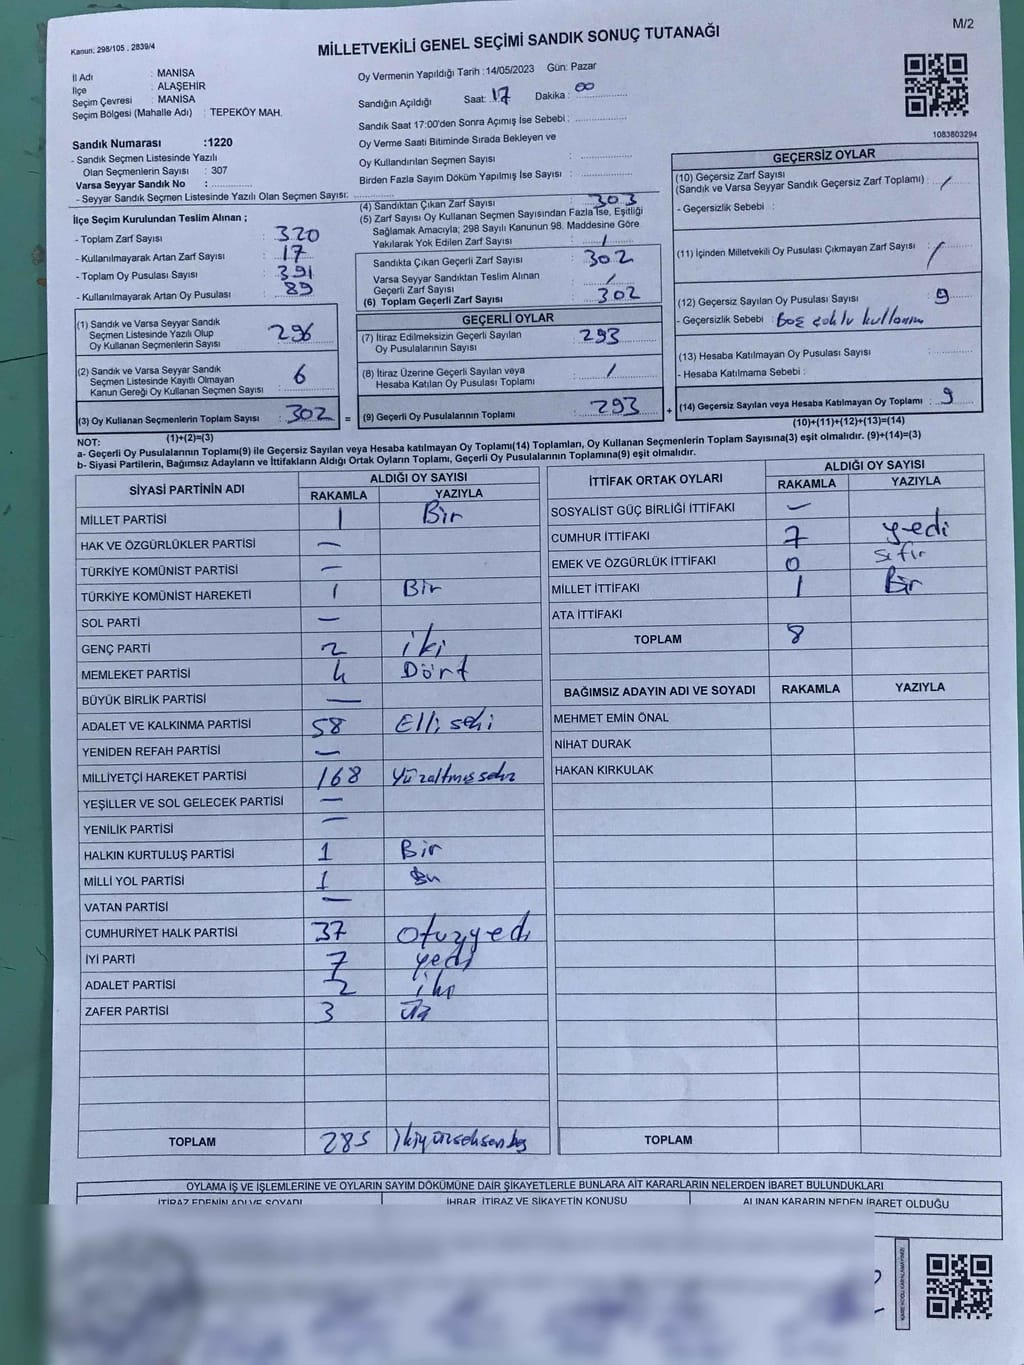 Kanun, 298/105 , 2839/4
M/2
MİLLETVEKİLİ GENEL SEÇİMİ SANDIK SONUÇ TUTANAĞI
İl Adı : MANİSA
İlçe : ALAŞEHİR
Seçim Çevresi : MANİSA
Seçim Bölgesi (Mahalle Adı) : TEPEKÖY MAH.
Sandık Numarası :1220
- Sandık Seçmen Listesinde Yazılı
Olan Seçmenlerin Sayısı : 307
Varsa Seyyar Sandık No :
- Seyyar Sandık Seçmen Listesinde Yazılı Olan Seçmen Sayısı:
İlçe Seçim Kurulundan Teslim Alınan ;
- Toplam Zarf Sayısı : 320
- Kullanılmayarak Artan Zarf Sayısı : 17
- Toplam Oy Pusulası Sayısı : 391
- Kullanılmayarak Artan Oy Pusulası : 89
(1) Sandık ve Varsa Seyyar Sandık
Seçmen Listesinde Yazılı Olup
Oy Kullanan Seçmenlerin Sayısı : 296
(2) Sandık ve Varsa Seyyar Sandık
Seçmen Listesinde Kayıtlı Olmayan
Kanun Gereği Oy Kullanan Seçmen Sayısı : 6
(3) Oy Kullanan Seçmenlerin Toplam Sayısı : 302 =
(1)+(2)=(3)
Oy Vermenin Yapıldığı Tarih :14/05/2023 Gün: Pazar
Sandığın Açıldığı Saat: 17 Dakika : 00
Sandık Saat 17:00'den Sonra Açımış İse Sebebi :
Oy Verme Saati Bitiminde Sırada Bekleyen ve
Oy Kullandırılan Seçmen Sayısı :
Birden Fazla Sayım Döküm Yapılmış İse Sayısı :
(4) Sandıktan Çıkan Zarf Sayısı : 303
(5) Zarf Sayısı Oy Kullanan Seçmen Sayısından Fazla İse, Eşitliği
Sağlamak Amacıyla; 298 Sayılı Kanunun 98. Maddesine Göre
Yakılarak Yok Edilen Zarf Sayısı : 1
Sandıkta Çıkan Geçerli Zarf Sayısı : 302
Varsa Seyyar Sandıktan Teslim Alınan
Geçerli Zarf Sayısı : /
(6) Toplam Geçerli Zarf Sayısı : 302
GEÇERLİ OYLAR
(7) İtiraz Edilmeksizin Geçerli Sayılan
Oy Pusulalarının Sayısı : 293
(8) İtiraz Üzerine Geçerli Sayılan veya
Hesaba Katılan Oy Pusulası Toplamı : /
(9) Geçerli Oy Pusulalarının Toplamı : 293 +
1083803294
GEÇERSİZ OYLAR
(10) Geçersiz Zarf Sayısı
(Sandık ve Varsa Seyyar Sandık Geçersiz Zarf Toplamı) : /
- Geçersizlik Sebebi :
(11) İçinden Milletvekili Oy Pusulası Çıkmayan Zarf Sayısı : /
(12) Geçersiz Sayılan Oy Pusulası Sayısı : 9
- Geçersizlik Sebebi : Boş
(13) Hesaba Katılmayan Oy Pusulası Sayısı :
- Hesaba Katılmama Sebebi :
(14) Geçersiz Sayılan veya Hesaba Katılmayan Oy Toplamı : 9
(10)+(11)+(12)+(13)=(14)
NOT:
a- Geçerli Oy Pusulalarının Toplamı(9) ile Geçersiz Sayılan veya Hesaba katılmayan Oy Toplamı(14) Toplamları, Oy Kullanan Seçmenlerin Toplam Sayısına(3) eşit olmalıdır. (9)+(14)=(3)
b- Siyasi Partilerin, Bağımsız Adayların ve İttifakların Aldığı Ortak Oyların Toplamı, Geçerli Oy Pusulalarının Toplamına(9) eşit olmalıdır.
SİYASİ PARTİNİN ADI ALDIĞI OY SAYISI
RAKAMLA YAZIYLA
MİLLET PARTİSİ 1 Bir
HAK VE ÖZGÜRLÜKLER PARTİSİ —
TÜRKİYE KOMÜNİST PARTİSİ —
TÜRKİYE KOMÜNİST HAREKETİ 1 Bir
SOL PARTİ —
GENÇ PARTİ 2 iki
MEMLEKET PARTİSİ 4 Dört
BÜYÜK BİRLİK PARTİSİ —
ADALET VE KALKINMA PARTİSİ 58 Elli seki
YENİDEN REFAH PARTİSİ —
MİLLİYETÇİ HAREKET PARTİSİ 168 Yüzaltmışsekiz
YEŞİLLER VE SOL GELECEK PARTİSİ —
YENİLİK PARTİSİ —
HALKIN KURTULUŞ PARTİSİ 1 Bir
MİLLİ YOL PARTİSİ 1
VATAN PARTİSİ —
CUMHURİYET HALK PARTİSİ 37 Otuzyedi
İYİ PARTİ 7 yedi
ADALET PARTİSİ 2 iki
ZAFER PARTİSİ 3 Üç
TOPLAM 285 ikiyüzseksenbeş
İTTİFAK ORTAK OYLARI ALDIĞI OY SAYISI
RAKAMLA YAZIYLA
SOSYALİST GÜÇ BİRLİĞİ İTTİFAKI —
CUMHUR İTTİFAKI 7 yedi
EMEK VE ÖZGÜRLÜK İTTİFAKI 0 sıfır
MİLLET İTTİFAKI 1 Bir
ATA İTTİFAKI
TOPLAM 8
BAĞIMSIZ ADAYIN ADI VE SOYADI RAKAMLA YAZIYLA
MEHMET EMİN ÖNAL
NİHAT DURAK
HAKAN KIRKULAK
TOPLAM
OYLAMA İŞ VE İŞLEMLERİNE VE OYLARIN SAYIM DÖKÜMÜNE DAİR ŞİKAYETLERLE BUNLARA AİT KARARLARIN NELERDEN İBARET BULUNDUKLARI
İTİRAZ EDENİN ADI VE SOYADI İHBAR, İTİRAZ VE ŞİKAYETİN KONUSU ALINAN KARARIN NEDEN İBARET OLDUĞU